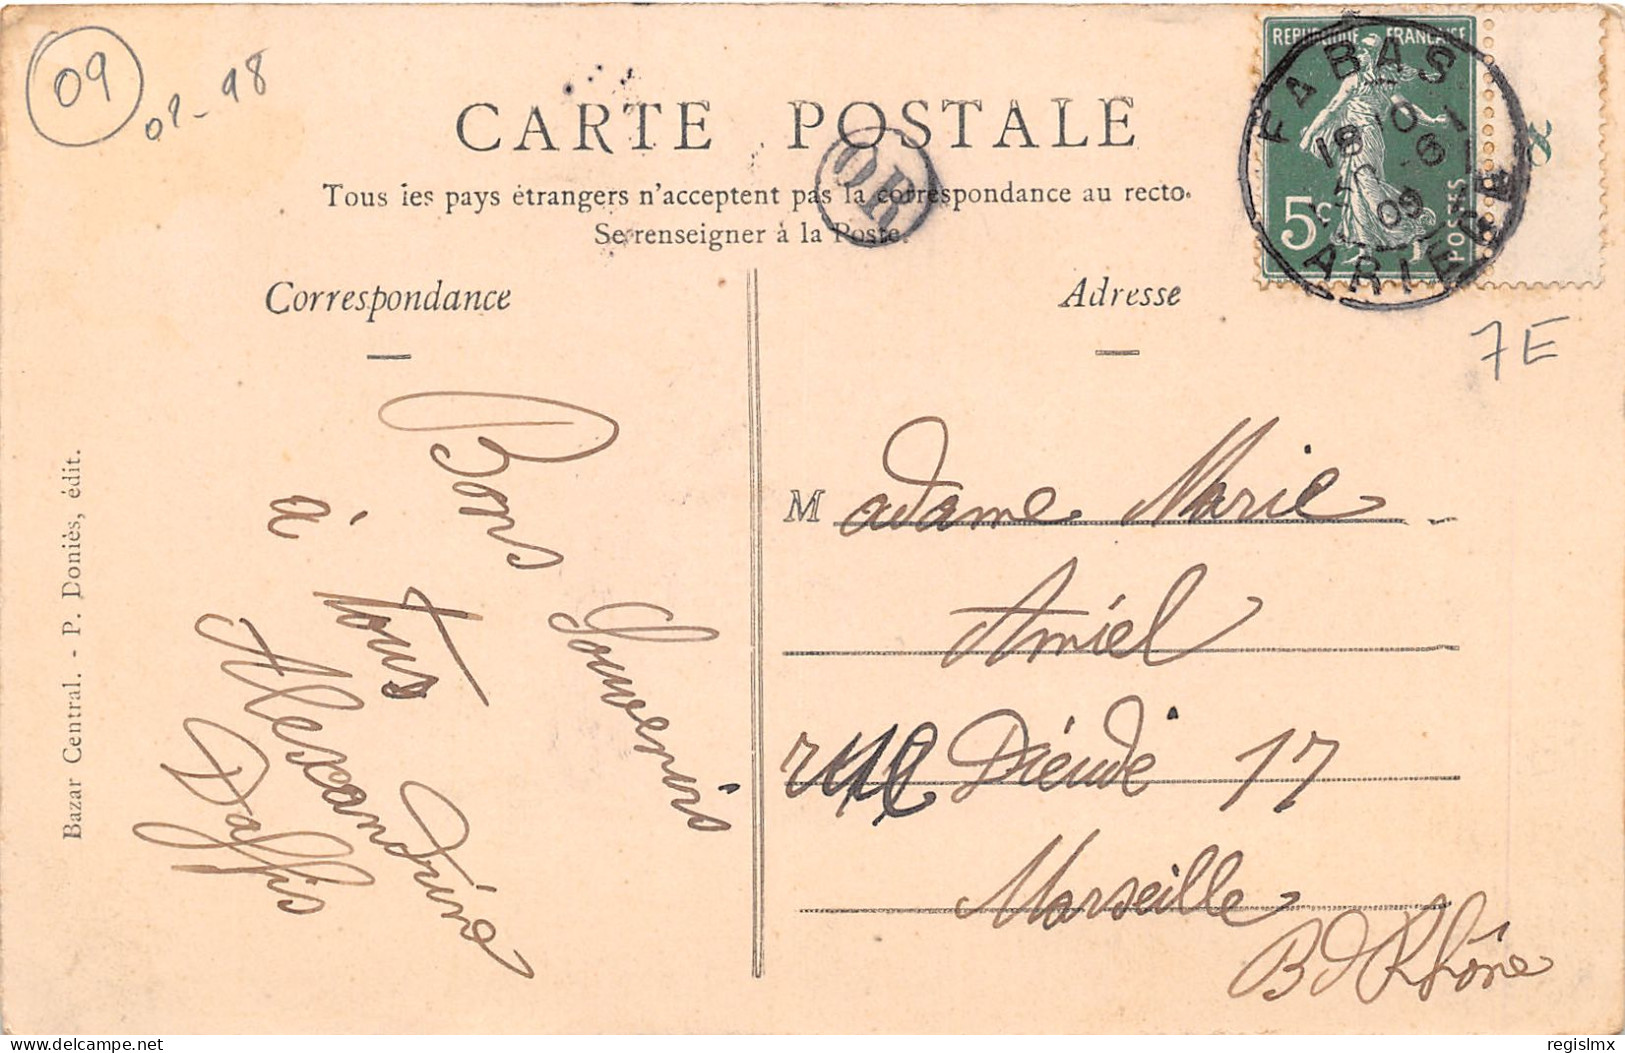 09
CARTE POSTALE
OR
Tous les pays étrangers n'acceptent pas la correspondance au recto.
Se renseigner à la Poste.
REPUBLIQUE FRANÇAISE
5c
POSTES
FABAS
ARIEGE
09
7E
Correspondance
Bons Souvenirs
à tous
Alexandrine
Daffis
Bazar Central. - P. Doniès, édit.
Adresse
Madame Marie
Amiel
rue Dieudé 17
Marseille
B d Rhône
delcampe.net
regislmx